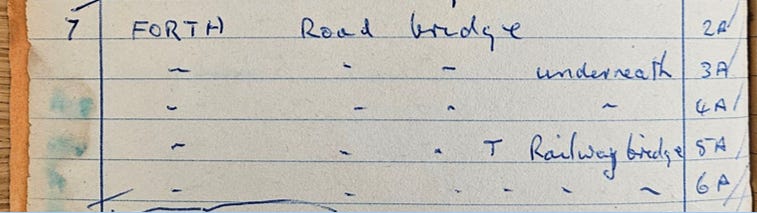 7 FORTH Road bridge 2A
~ - ~ underneath 3A
~ - - ~ 4A
~ - - T Railway bridge 5A
- - - - - ~ 6A